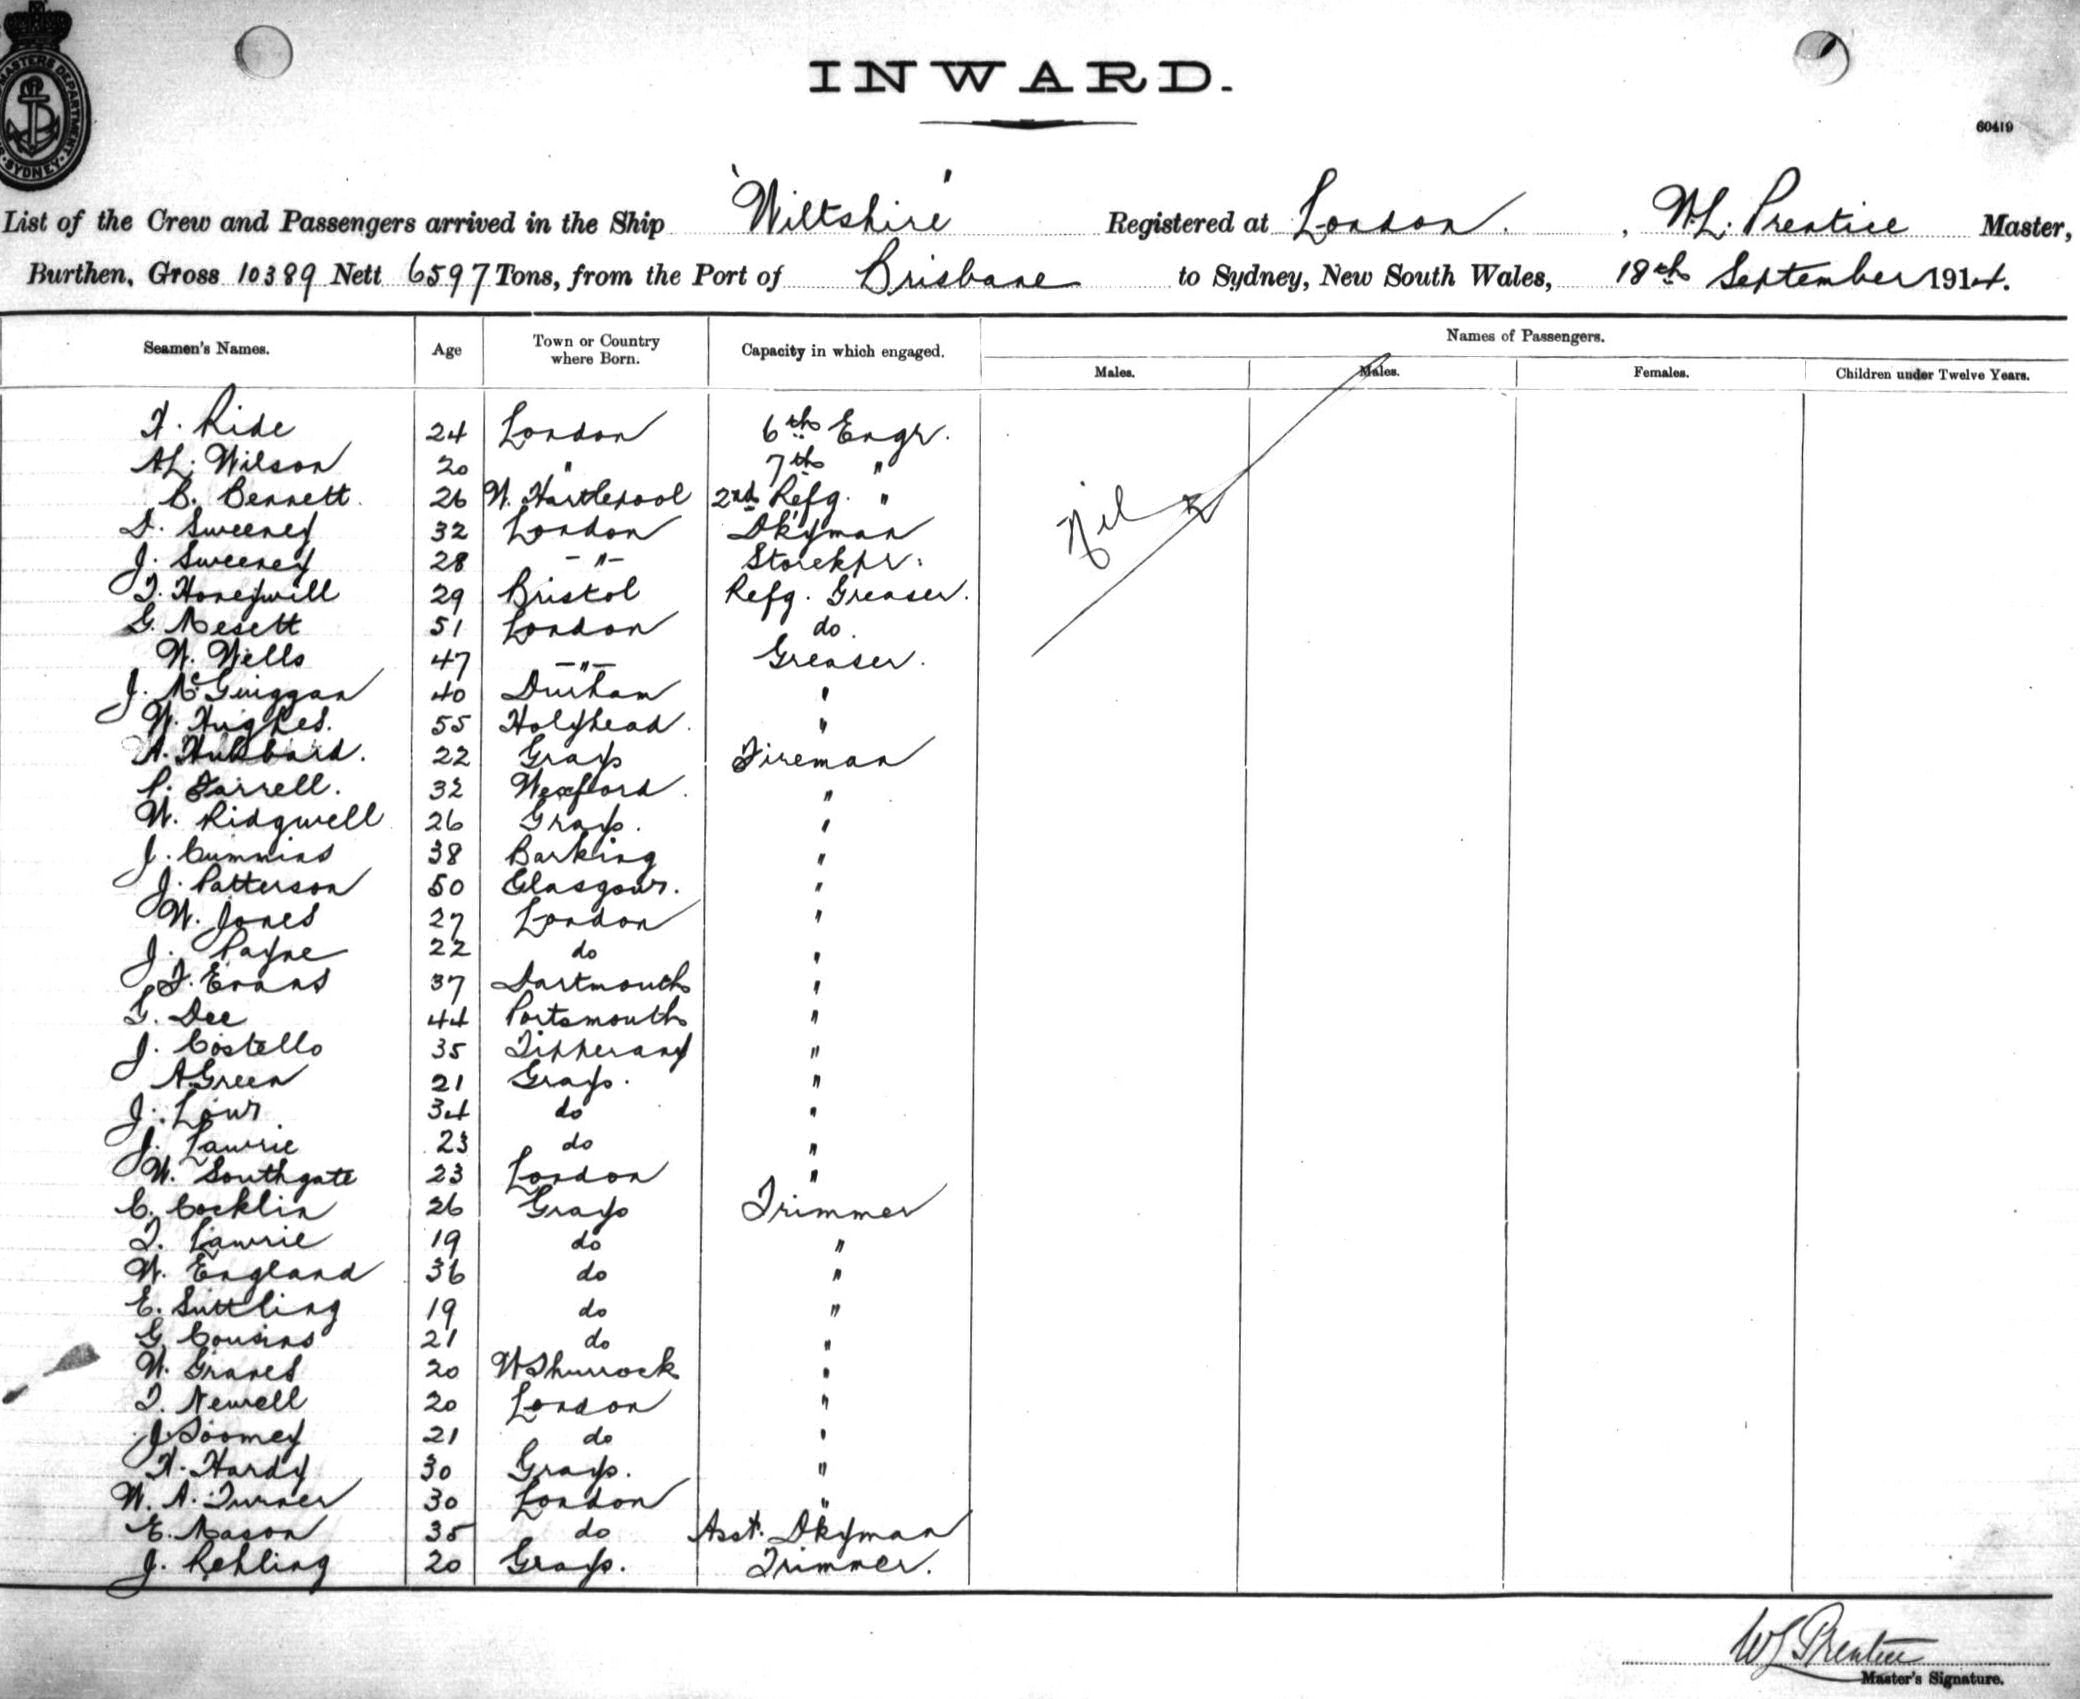 MASTERS DEPARTMENT
SYDNEY
INWARD.
60419
List of the Crew and Passengers arrived in the Ship "Wiltshire" Registered at London. , W.L. Prentice Master,
Burthen, Gross 10389 Nett 6597 Tons, from the Port of Brisbane to Sydney, New South Wales, 18th September 1914.
Seamen's Names. Age Town or Country where Born. Capacity in which engaged. Names of Passengers.
Males. Males. Females. Children under Twelve Years.
Nil
H. Ride 24 London 6th Engr.
A.L. Wilson 20 " 7th "
B. Bennett 26 W. Hartlepool 2nd Refg. "
D. Sweeney 32 London Dkyman
J. Sweeney 28 -"- Storekpr.
T. Honeywill 29 Bristol Refg. Greaser.
G. Mesett 51 London do.
W. Wells 47 -"- Greaser.
J. McGuiggan 40 Durham "
W. Hughes. 55 Holyhead. "
A. Hubbard. 22 Grays Fireman
P. Farrell. 32 Wexford. "
W. Ridgwell 26 Grays. "
J. Cummins 38 Barking "
J. Patterson 50 Glasgow. "
W. Jones 27 London "
J. Payne 22 do "
F. Evans 37 Dartmouth "
G. Dee 44 Portsmouth "
J. Costello 35 Tipperary "
A. Green 21 Grays. "
J. Low 34 do "
J. Lawrie 23 do "
W. Southgate 23 London "
C. Cocklin 26 Grays Trimmer
T. Lawrie 19 do "
W. England 36 do "
E. Suttling 19 do "
G. Cousins 21 do "
W. Graves 20 W Thurrock "
T. Newell 20 London "
J Toomey 21 do "
H. Hardy 30 Grays. "
W. A. Turner 30 London "
E. Mason 35 do Asst. Dkyman
J. Rehling 20 Grays. Trimmer.
WL Prentice
Master's Signature.